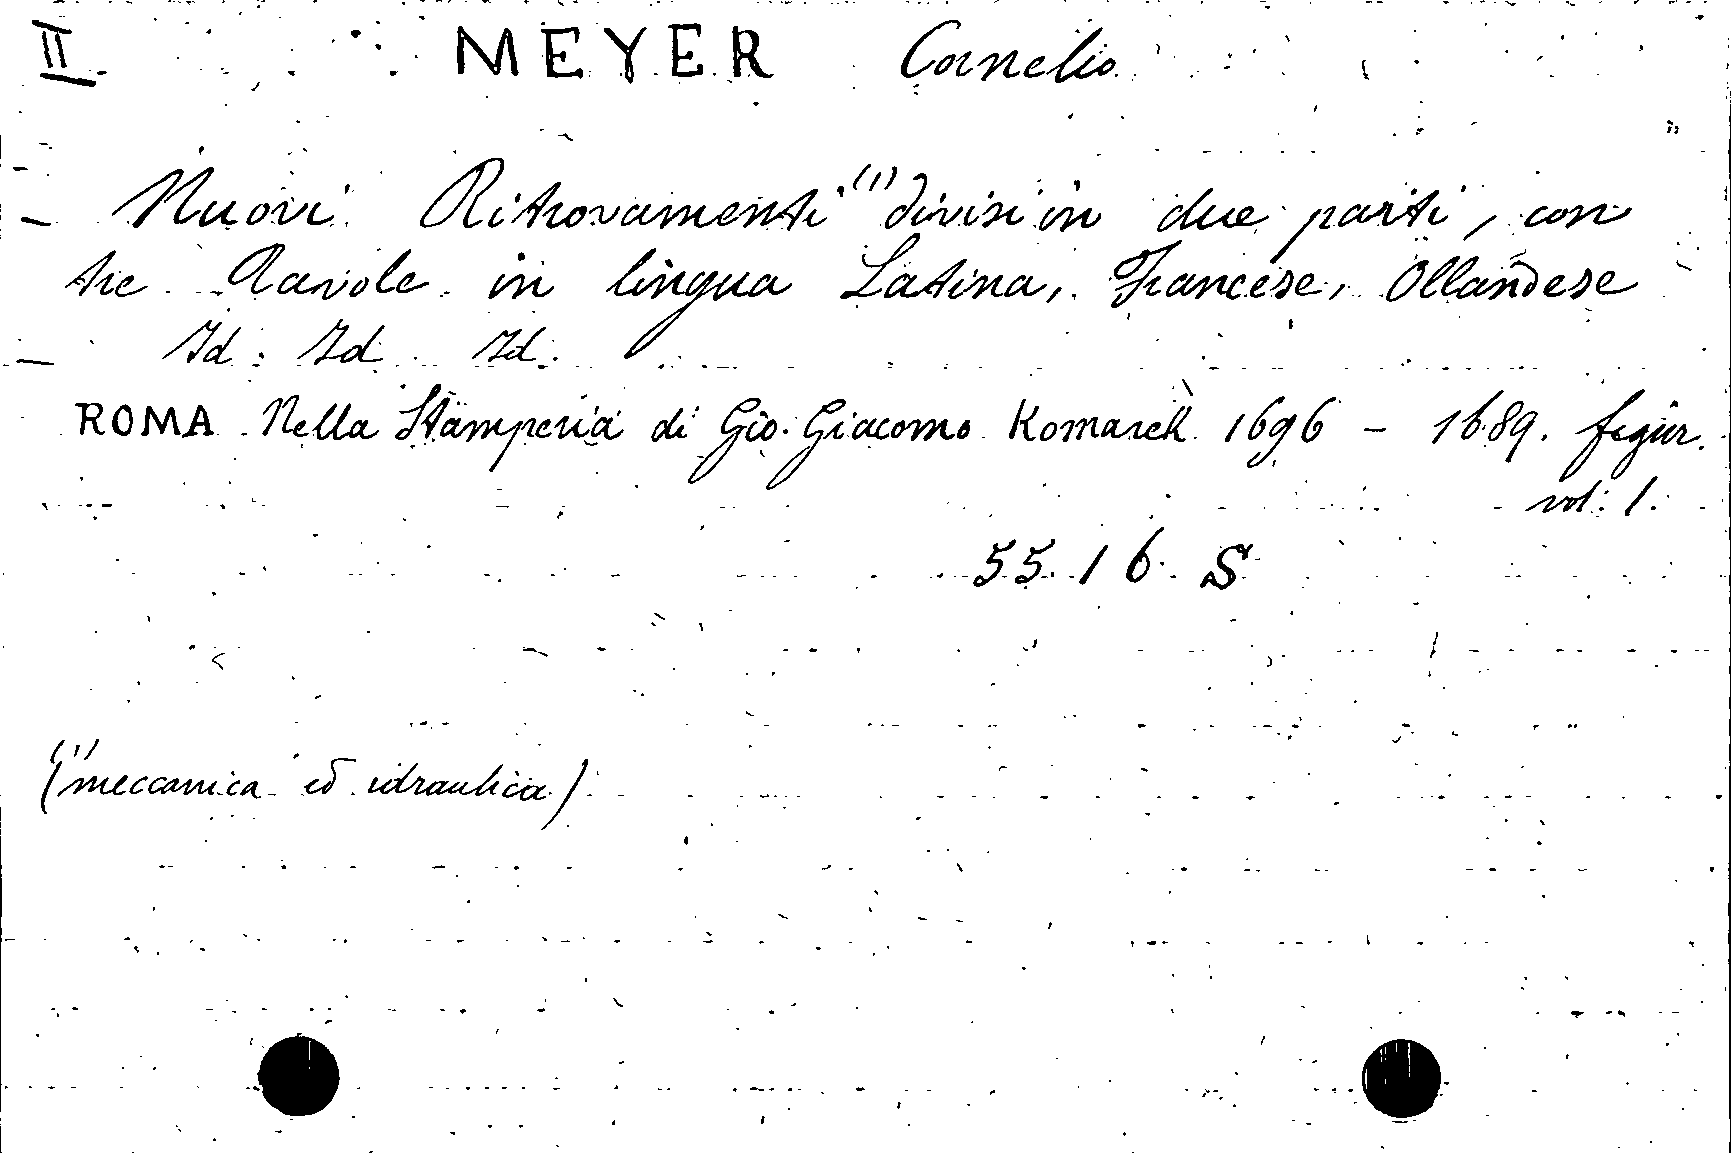 II MEYER Cornelio
- Nuovi Ritrovamenti (1) divisi in due parti, con
tre Tavole in lingua Latina, Francese, Ollandese
- Id. Id. Id.
ROMA Nella Stamperia di Gio. Giacomo Komarek 1696 - 1689. figur.
vol. 1.
55.16.S
(1)
(meccanica ed idraulica)